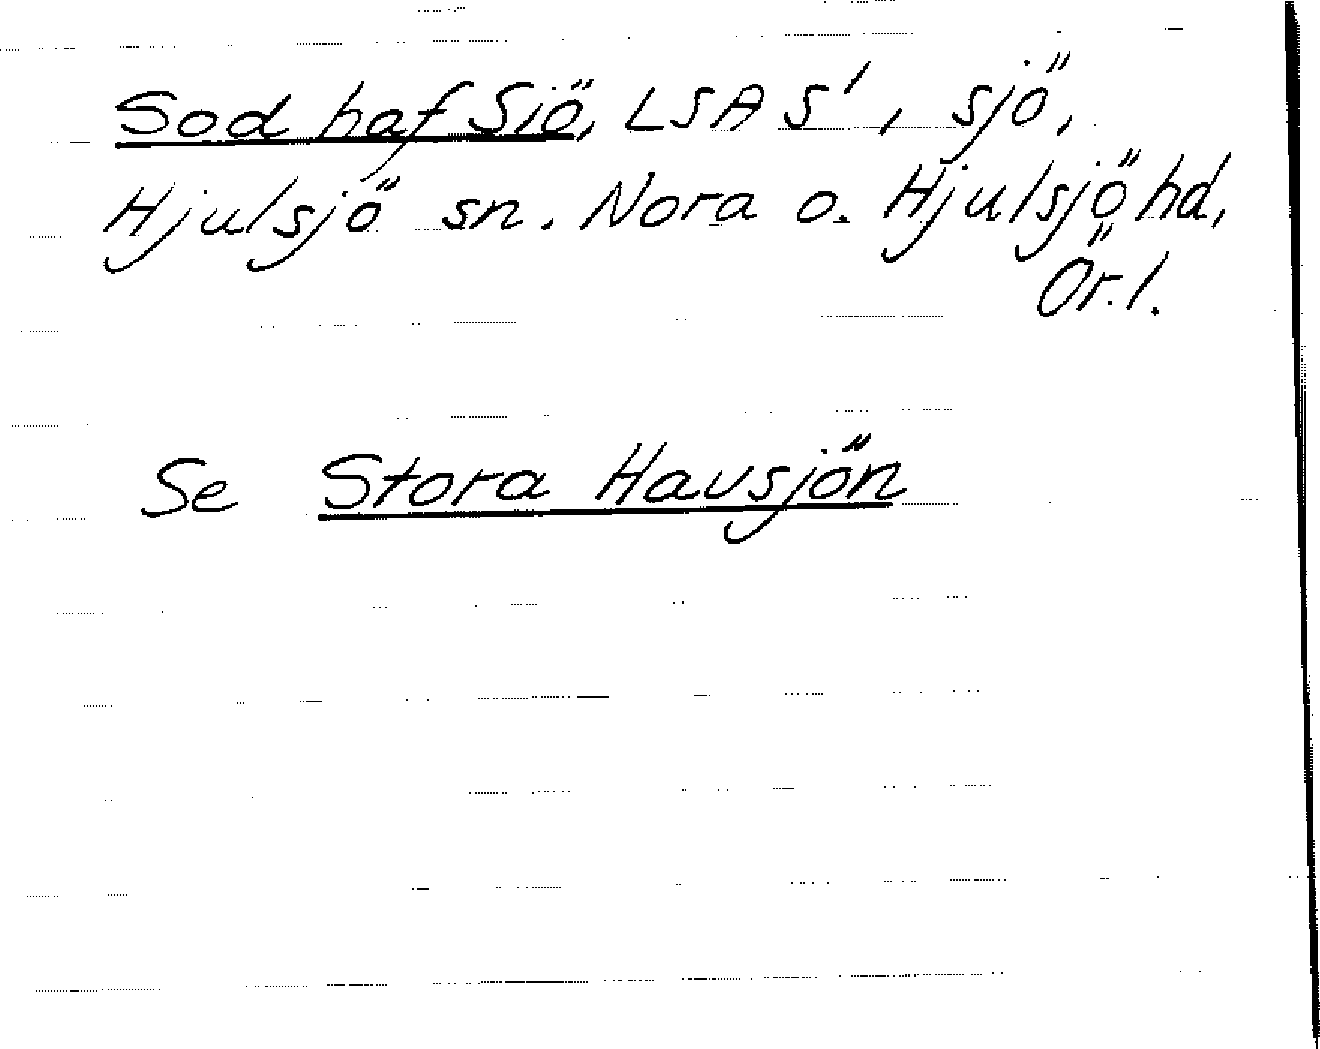 Sod haf Siö, LSA S', sjö,
Hjulsjö sn. Nora o. Hjulsjö hd,
Ör. l.
Se Stora Havsjön